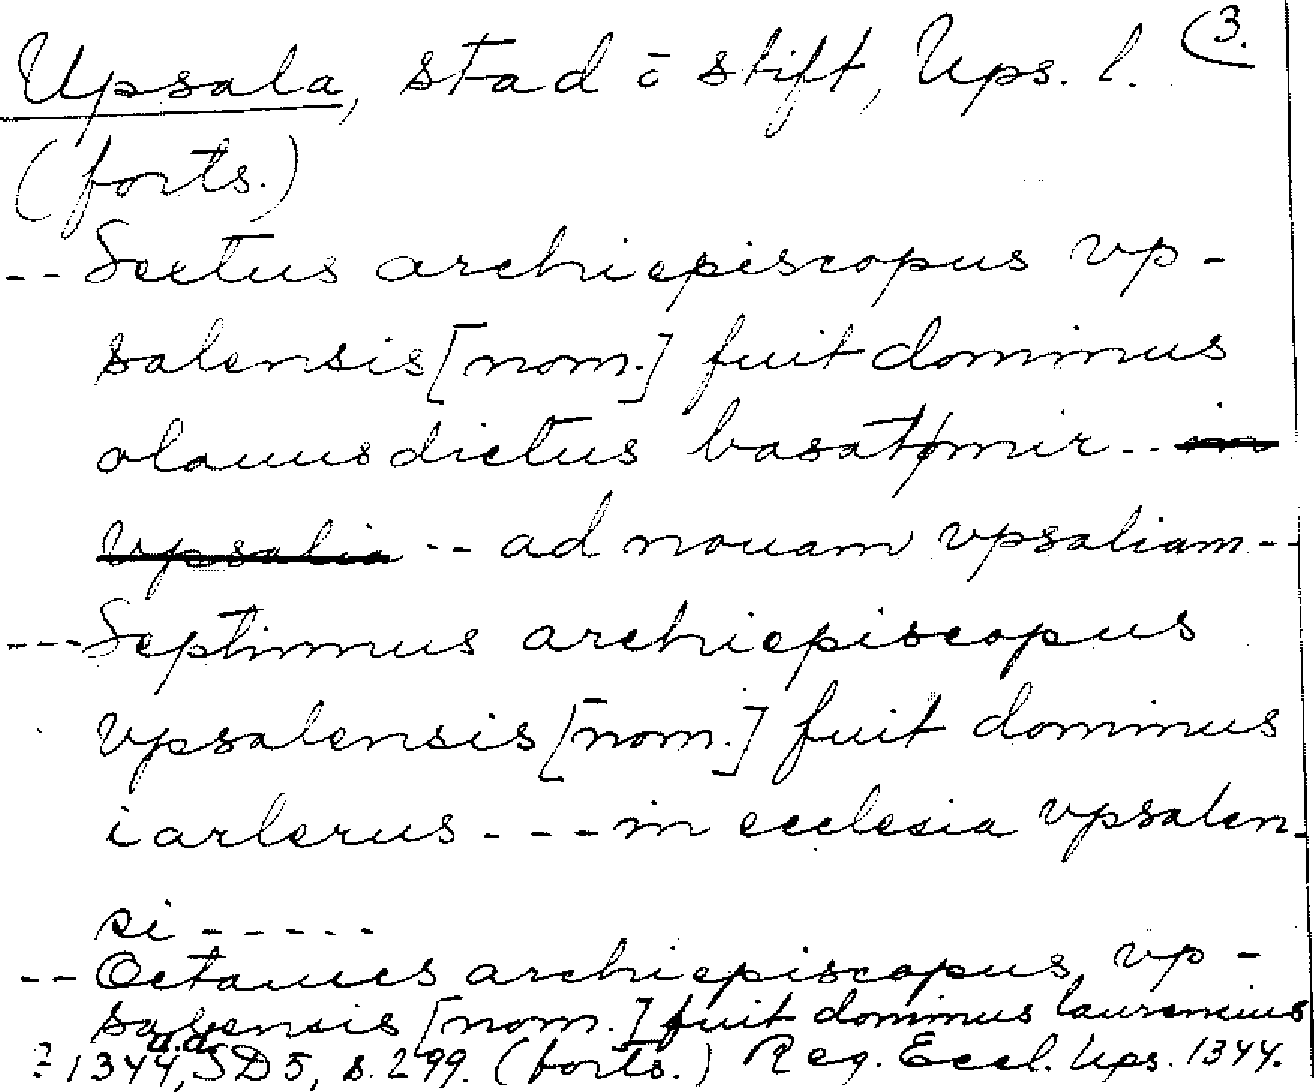 Upsala, stad o stift, Ups. l. (3.
(forts.)
-- Sextus archiepiscopus vp-
salensis [nom.] fuit dominus
olauus dictus basatømir --
-- ad nouam vpsaliam --
--- Septimus archiepiscopus
vpsalensis [nom.] fuit dominus
iarlerus - - - in ecclesia vpsalen-
si - - - - -
-- Octauus archiepiscopus vp-
salensis [nom.] fuit dominus laurencius
1344, SD 5, s. 299. (forts.) Reg. Eccl. Ups. 1344.